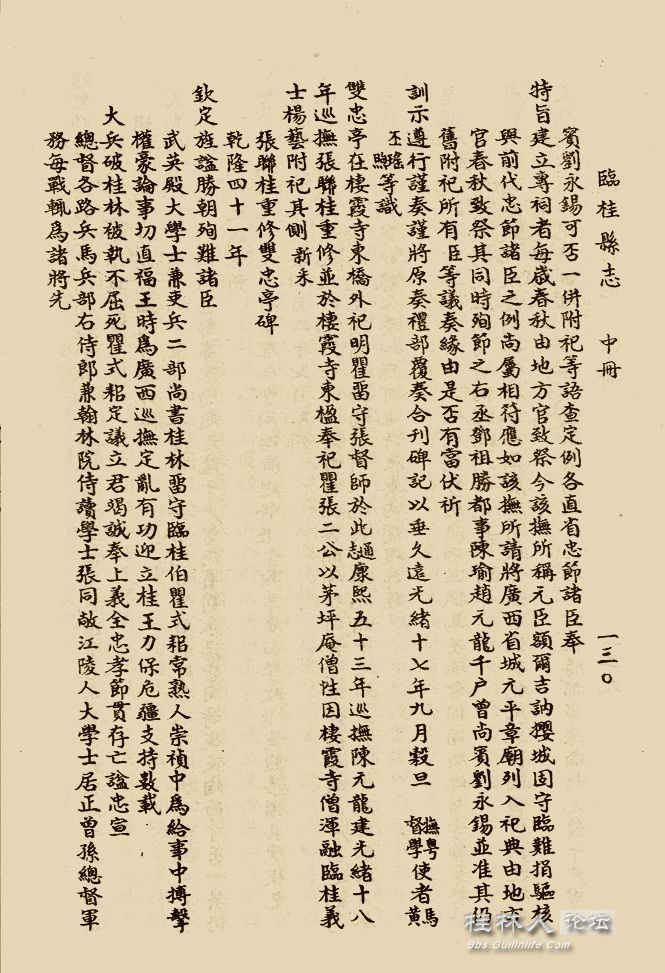 臨桂縣志　中冊　一三〇
賓劉永錫可否一併附祀等語查定例各直省忠節諸臣奉
特旨建立專祠者每歲春秋由地方官致祭今該撫所稱元臣額爾吉訥攖城固守臨難捐軀核
與前代忠節諸臣之例尚屬相符應如該撫所請將廣西省城元平章廟列入祀典由地方
官春秋致祭其同時殉節之右丞鄧祖勝都事陳瑜趙元龍千户曾尚賓劉永錫並准其
舊附祀所有臣等議奏緣由是否有當伏祈
訓示遵行謹奏謹將原奏禮部覆奏合刊碑記以垂久遠光緒十七年九月穀旦　撫粤使者馬
督學使者黃
丕瑤
煦等識
雙忠亭在棲霞寺東橋外祀明瞿畱守張督師於此通志康熙五十三年巡撫陳元龍建光緒十八
年巡撫張聯桂重修並於棲霞寺東楹奉祀瞿張二公以茅坪庵僧性因棲霞寺僧渾融臨桂義
士楊藝附祀其側新采
張聯桂重修雙忠亭碑
乾隆四十一年
欽定旌諡勝朝殉難諸臣
武英殿大學士兼吏兵二部尚書桂林畱守臨桂伯瞿式耜常熟人崇禎中爲給事中搏擊
權豪論事切直福王時爲廣西巡撫定亂有功迎立桂王力保危疆支持數載
大兵破桂林被執不屈死瞿式耜定議立君竭誠奉上義全忠孝節貫存亡諡忠宣
總督各路兵馬兵部右侍郎兼翰林院侍讀學士張同敞江陵人大學士居正曾孫總督軍
務每戰輒爲諸將先
桂林人论坛
Bbs.Guilinlife.Com